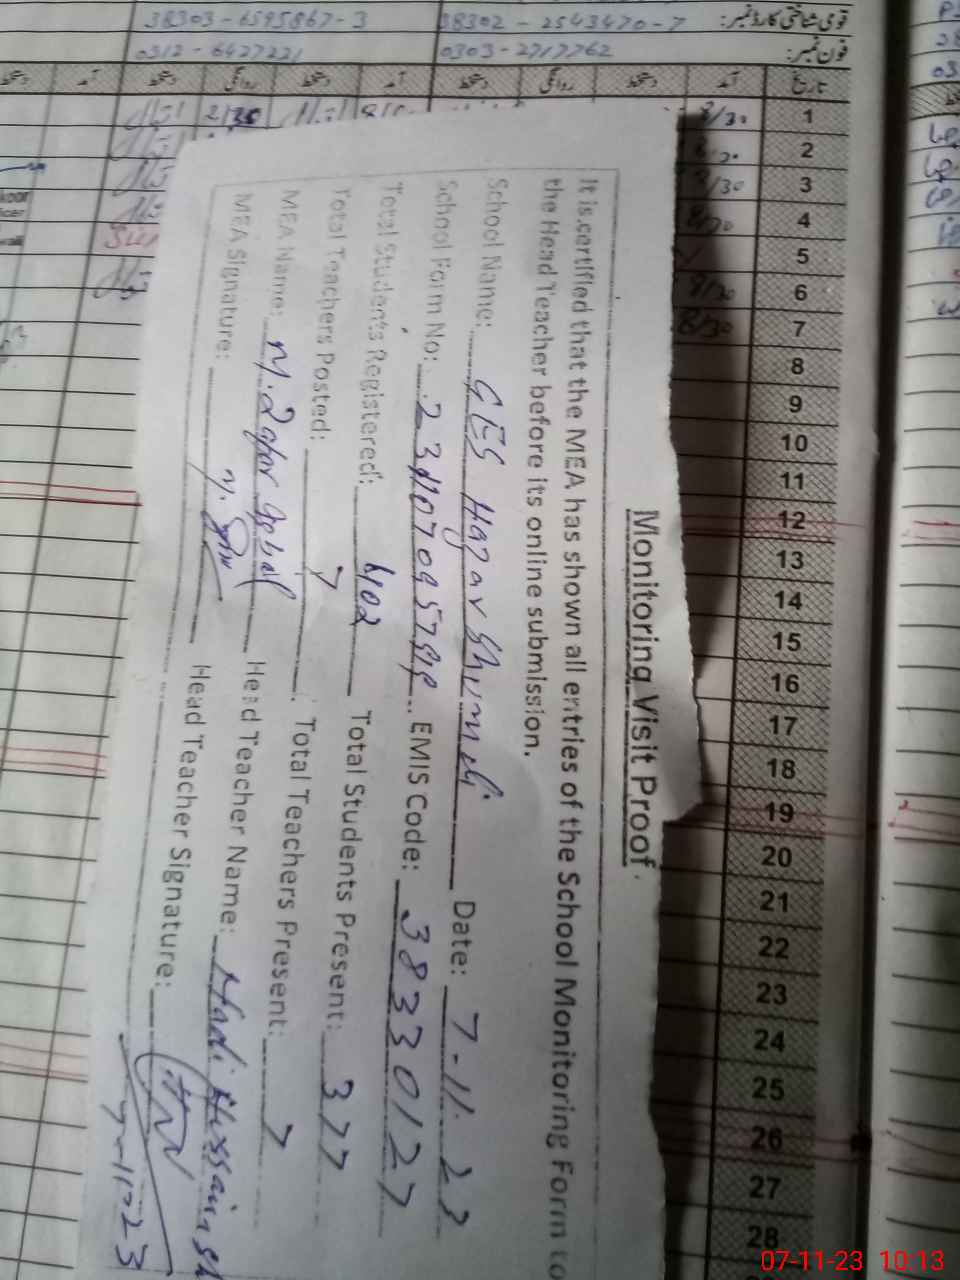 38303-6595867-3 38302-2543470-7 قومی شناختی کارڈ نمبر:
0312-6427221 0303-2717762 فون نمبر:
تاریخ آمد دستخط روانگی دستخط آمد دستخط روانگی دستخط آمد
1 8/30
2
3 8/30
4 8/30
5
6 8/30
7 8/30
8
9
10
11
12
13
14
15
16
17
18
19
20
21
22
23
24
25
26
27
28
Monitoring Visit Proof
It is certified that the MEA has shown all entries of the School Monitoring Form to
the Head Teacher before its online submission.
School Name: GES Hazar Shumali Date: 7-11-23
School Form No: EMIS Code: 38330127
Total Students Registered: 402 Total Students Present: 377
Total Teachers Posted: 7 Total Teachers Present: 7
MEA Name: M. Zafar Iqbal Head Teacher Name: Hadi Hussain Sh
MEA Signature: Head Teacher Signature:
7-11-23
07-11-23 10:13